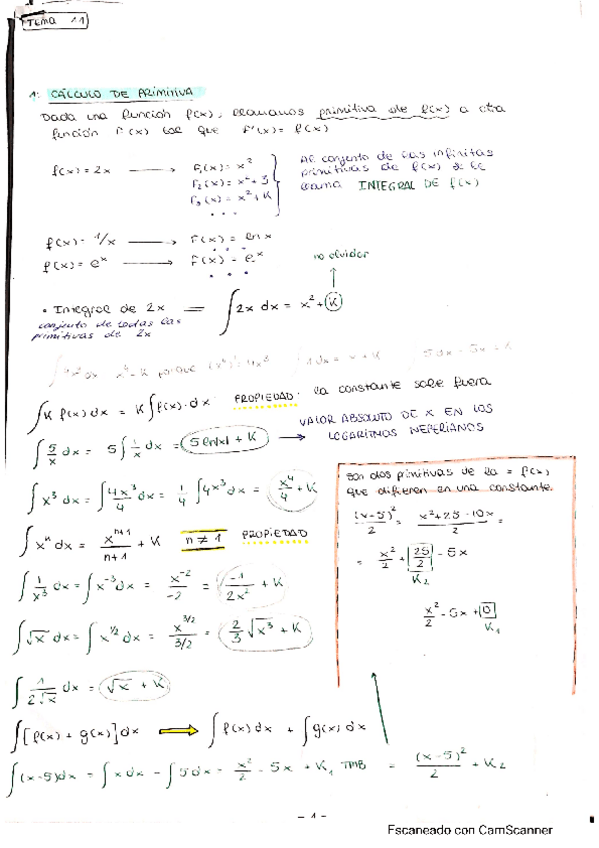 Tema 11
1: CÁLCULO DE PRIMITIVA
Dada una función f(x), llamamos primitiva de f(x) a otra
función F(x) tal que F'(x) = f(x)
f(x) = 2x → F₁(x) = x²
F₂(x) = x² + 3
F₃(x) = x² + K
...
Al conjunto de las infinitas
primitivas de f(x) se le
llama INTEGRAL DE f(x)
f(x) = 1/x → F(x) = ln x
...
f(x) = e^x → F(x) = e^x
...
no olvidar
• Integral de 2x = ∫2x dx = x² + K
conjunto de todas las
primitivas de 2x
∫4x³ dx x⁴ + K porque (x⁴)' = 4x³ ∫1 dx = x + K ∫5 dx = 5x + K
∫K f(x) dx = K ∫f(x)·dx PROPIEDAD: la constante sale fuera
∫5/x dx = 5∫1/x dx = 5 ln|x| + K → VALOR ABSOLUTO DE X EN LOS
LOGARITMOS NEPERIANOS
∫x³ dx = ∫4x³/4 dx = 1/4 ∫4x³ dx = x⁴/4 + K
∫xⁿ dx = xⁿ⁺¹/n+1 + K n ≠ 1 PROPIEDAD
∫1/x³ dx = ∫x⁻³ dx = x⁻²/-2 = -1/2x² + K
∫√x dx = ∫x^1/2 dx = x^3/2 / 3/2 = 2/3 √x³ + K
∫1/2√x dx = √x + K
son dos primitivas de la = f(x),
que difieren en una constante.
(x-5)²/2 = x²+25-10x/2 =
= x²/2 + 25/2 - 5x
K₂
x²/2 - 5x + 0
K₁
∫[f(x) + g(x)] dx ⇒ ∫f(x) dx + ∫g(x) dx
∫(x-5)dx = ∫x dx - ∫5 dx = x²/2 - 5x + K₁ TMB = (x-5)²/2 + K₂
- 1 -
Escaneado con CamScanner